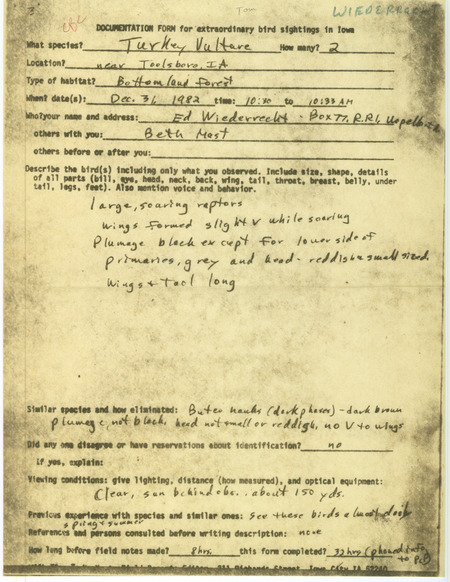 3
Tom
WIEDERRECHT
DOCUMENTATION FORM for extraordinary bird sightings in Iowa
What species? Turkey Vulture How many? 2
Location? near Toolsboro, IA
Type of habitat? Bottomland forest
When? date(s): Dec. 31, 1982 time: 10:30 to 10:33 AM
Who?your name and address: Ed Wiederrecht - Box 77, R.R.1, Wapello
others with you: Beth Mast
others before or after you:
Describe the bird(s) including only what you observed. Include size, shape, details
of all parts (bill, eye, head, neck, back, wing, tail, throat, breast, belly, under
tail, legs, feet). Also mention voice and behavior.
large, soaring raptors
wings formed slight V while soaring
Plumage black except for lower side of
primaries, grey and head - reddish & small sized.
Wings & tail long
Similar species and how eliminated: Buteo hawks (dark phases) - dark brown
plumage, not black, head not small or reddish, no V to wings
Did any one disagree or have reservations about identification? no
if yes, explain:
Viewing conditions: give lighting, distance (how measured), and optical equipment:
Clear, sun behind obs., about 150 yds.
Previous experience with species and similar ones: See these birds almost daily
spring & summer
References and persons consulted before writing description: none
How long before field notes made? 8 hrs. this form completed? 32 hrs (phoned into
to
Iowa City IA 52240